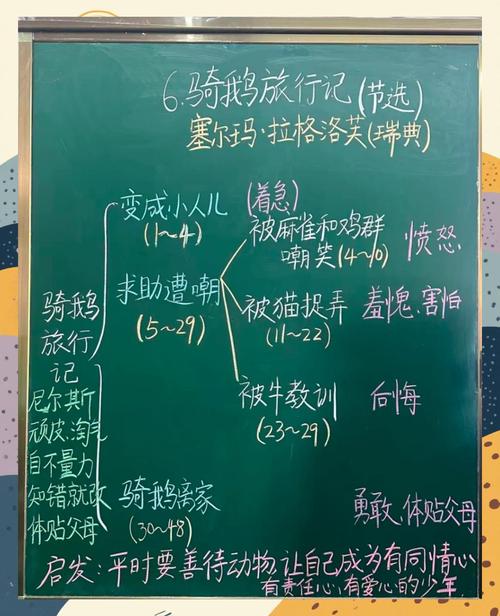 6.骑鹅旅行记(节选)
塞尔玛·拉格洛芙(瑞典)
变成小人儿 (着急)
(1~4)
被麻雀和鸡群
嘲笑(4~10) 愤怒
求助遭嘲
(5~29)
被猫捉弄 羞愧、害怕
(11~22)
被牛教训 后悔
(23~29)
骑鹅
旅行
记
尼尔斯
顽皮.淘气
自不量力
知错就改
体贴父母
骑鹅离家 勇敢、体贴父母
(30~48)
启发:平时要善待动物,让自己成为有同情心
有责任心,有爱心的少年.